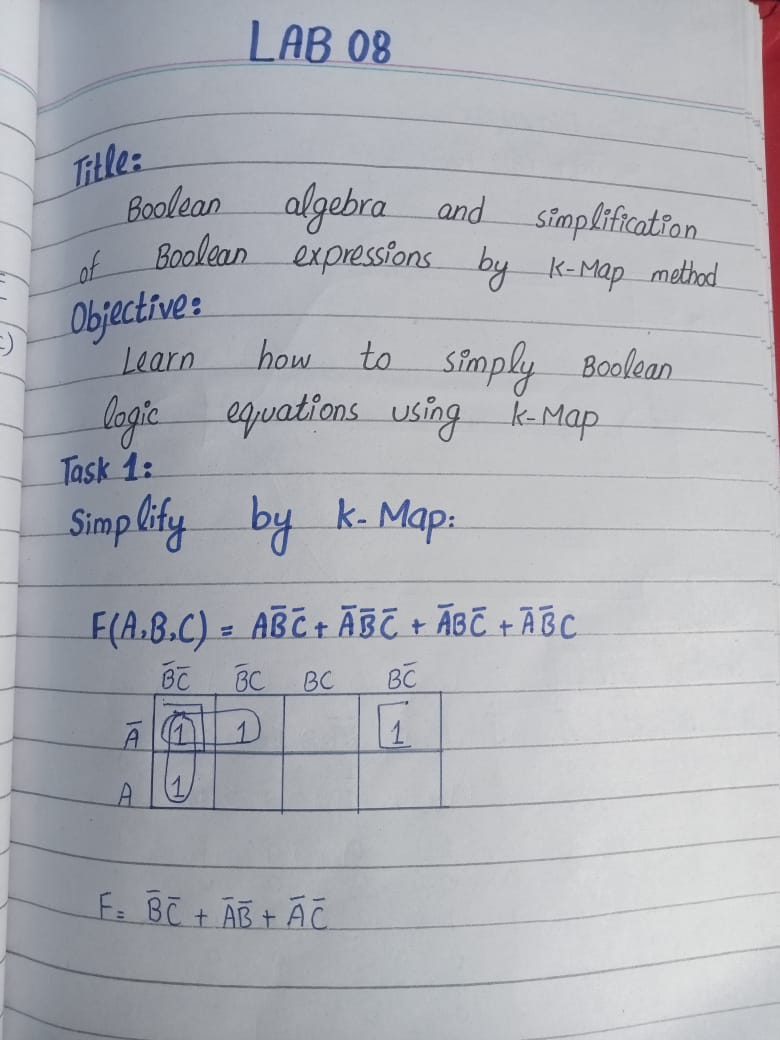 LAB 08
Title:
Boolean algebra and simplification
of Boolean expressions by K-Map method
Objective:
Learn how to simply Boolean
logic equations using K-Map
Task 1:
Simplify by K-Map:
F(A,B,C) = AB̅C̅ + A̅B̅C̅ + A̅BC̅ + A̅B̅C
B̅C̅ B̅C BC BC̅
A̅ 1 1 1
A 1
F= B̅C̅ + A̅B̅ + A̅C̅